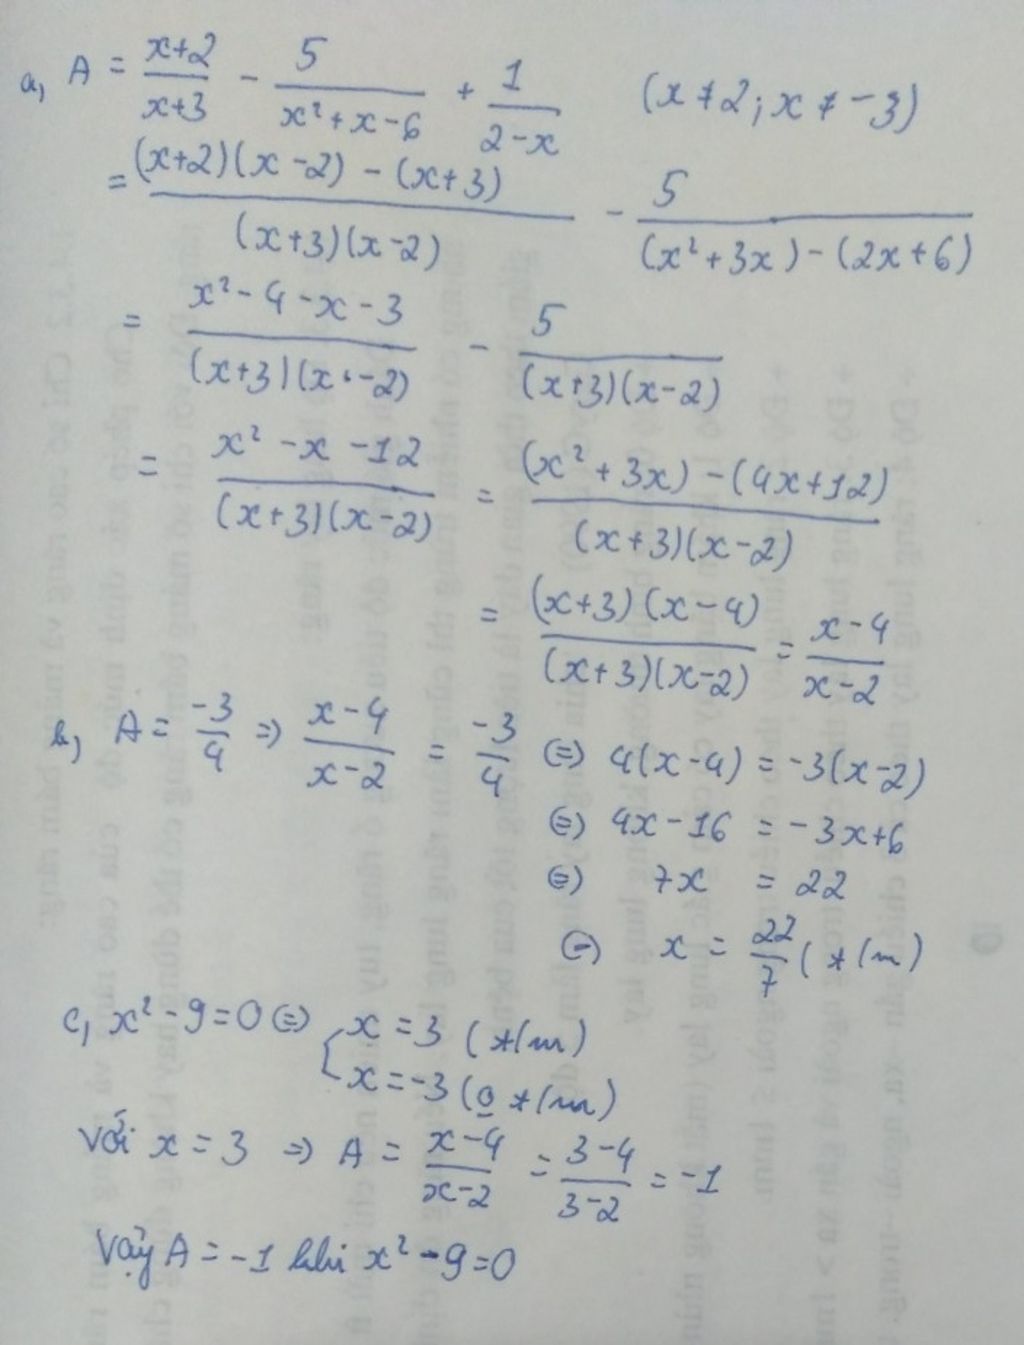 a, A = \frac{x+2}{x+3} - \frac{5}{x²+x-6} + \frac{1}{2-x} (x ≠ 2; x ≠ -3)
= \frac{(x+2)(x-2) - (x+3)}{(x+3)(x-2)} - \frac{5}{(x²+3x)-(2x+6)}
= \frac{x²-4-x-3}{(x+3)(x-2)} - \frac{5}{(x+3)(x-2)}
= \frac{x²-x-12}{(x+3)(x-2)} = \frac{(x²+3x)-(4x+12)}{(x+3)(x-2)}
= \frac{(x+3)(x-4)}{(x+3)(x-2)} = \frac{x-4}{x-2}
b, A = \frac{-3}{4} => \frac{x-4}{x-2} = \frac{-3}{4} <=> 4(x-4) = -3(x-2)
<=> 4x-16 = -3x+6
<=> 7x = 22
<=> x = \frac{22}{7} (t/m)
c, x²-9=0 <=> x = 3 (t/m)
x = -3 (o t/m)
Với x = 3 => A = \frac{x-4}{x-2} = \frac{3-4}{3-2} = -1
Vậy A = -1 khi x²-9=0